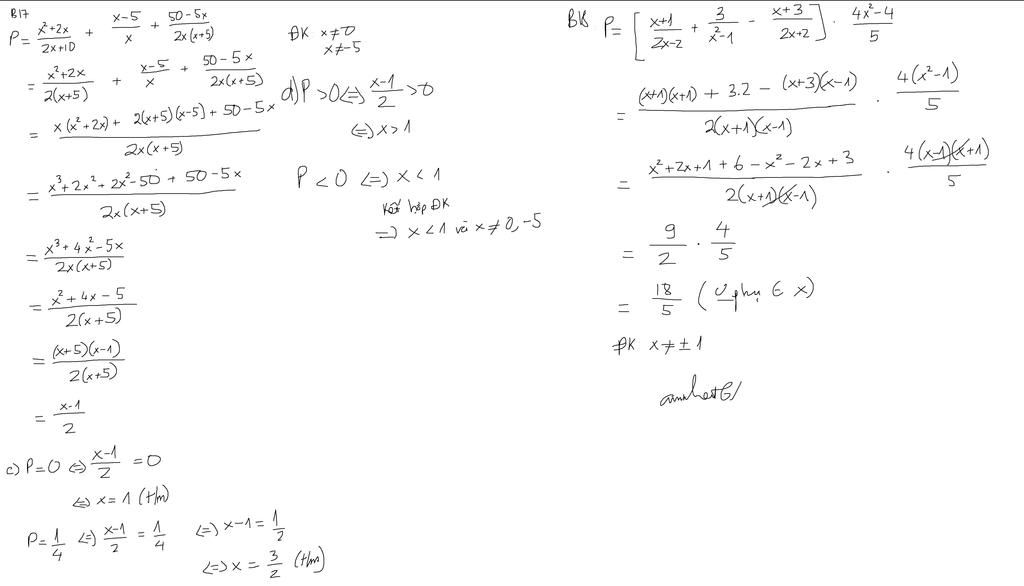 B17
P = \frac{x²+2x}{2x+10} + \frac{x-5}{x} + \frac{50-5x}{2x(x+5)}
= \frac{x²+2x}{2(x+5)} + \frac{x-5}{x} + \frac{50-5x}{2x(x+5)}
= \frac{x(x²+2x) + 2(x+5)(x-5) + 50-5x}{2x(x+5)}
= \frac{x³+2x²+2x²-50+50-5x}{2x(x+5)}
= \frac{x³+4x²-5x}{2x(x+5)}
= \frac{x²+4x-5}{2(x+5)}
= \frac{(x+5)(x-1)}{2(x+5)}
= \frac{x-1}{2}
c) P=0 <=> \frac{x-1}{2} = 0
<=> x=1 (t/m)
P=\frac{1}{4} <=> \frac{x-1}{2} = \frac{1}{4} <=> x-1=\frac{1}{2}
<=> x = \frac{3}{2} (t/m)
ĐK x≠0
x≠-5
d) P>0 <=> \frac{x-1}{2} >0
<=> x>1
P<0 <=> x<1
Kết hợp ĐK
=> x<1 và x≠0,-5
B18 P= [\frac{x+1}{2x-2} + \frac{3}{x²-1} - \frac{x+3}{2x+2}] . \frac{4x²-4}{5}
= \frac{(x+1)(x+1) + 3.2 - (x+3)(x-1)}{2(x+1)(x-1)} . \frac{4(x²-1)}{5}
= \frac{x²+2x+1+6-x²-2x+3}{2(x+1)(x-1)} . \frac{4(x-1)(x+1)}{5}
= \frac{9}{2} . \frac{4}{5}
= \frac{18}{5} ( phụ ∈ x)
ĐK x≠±1